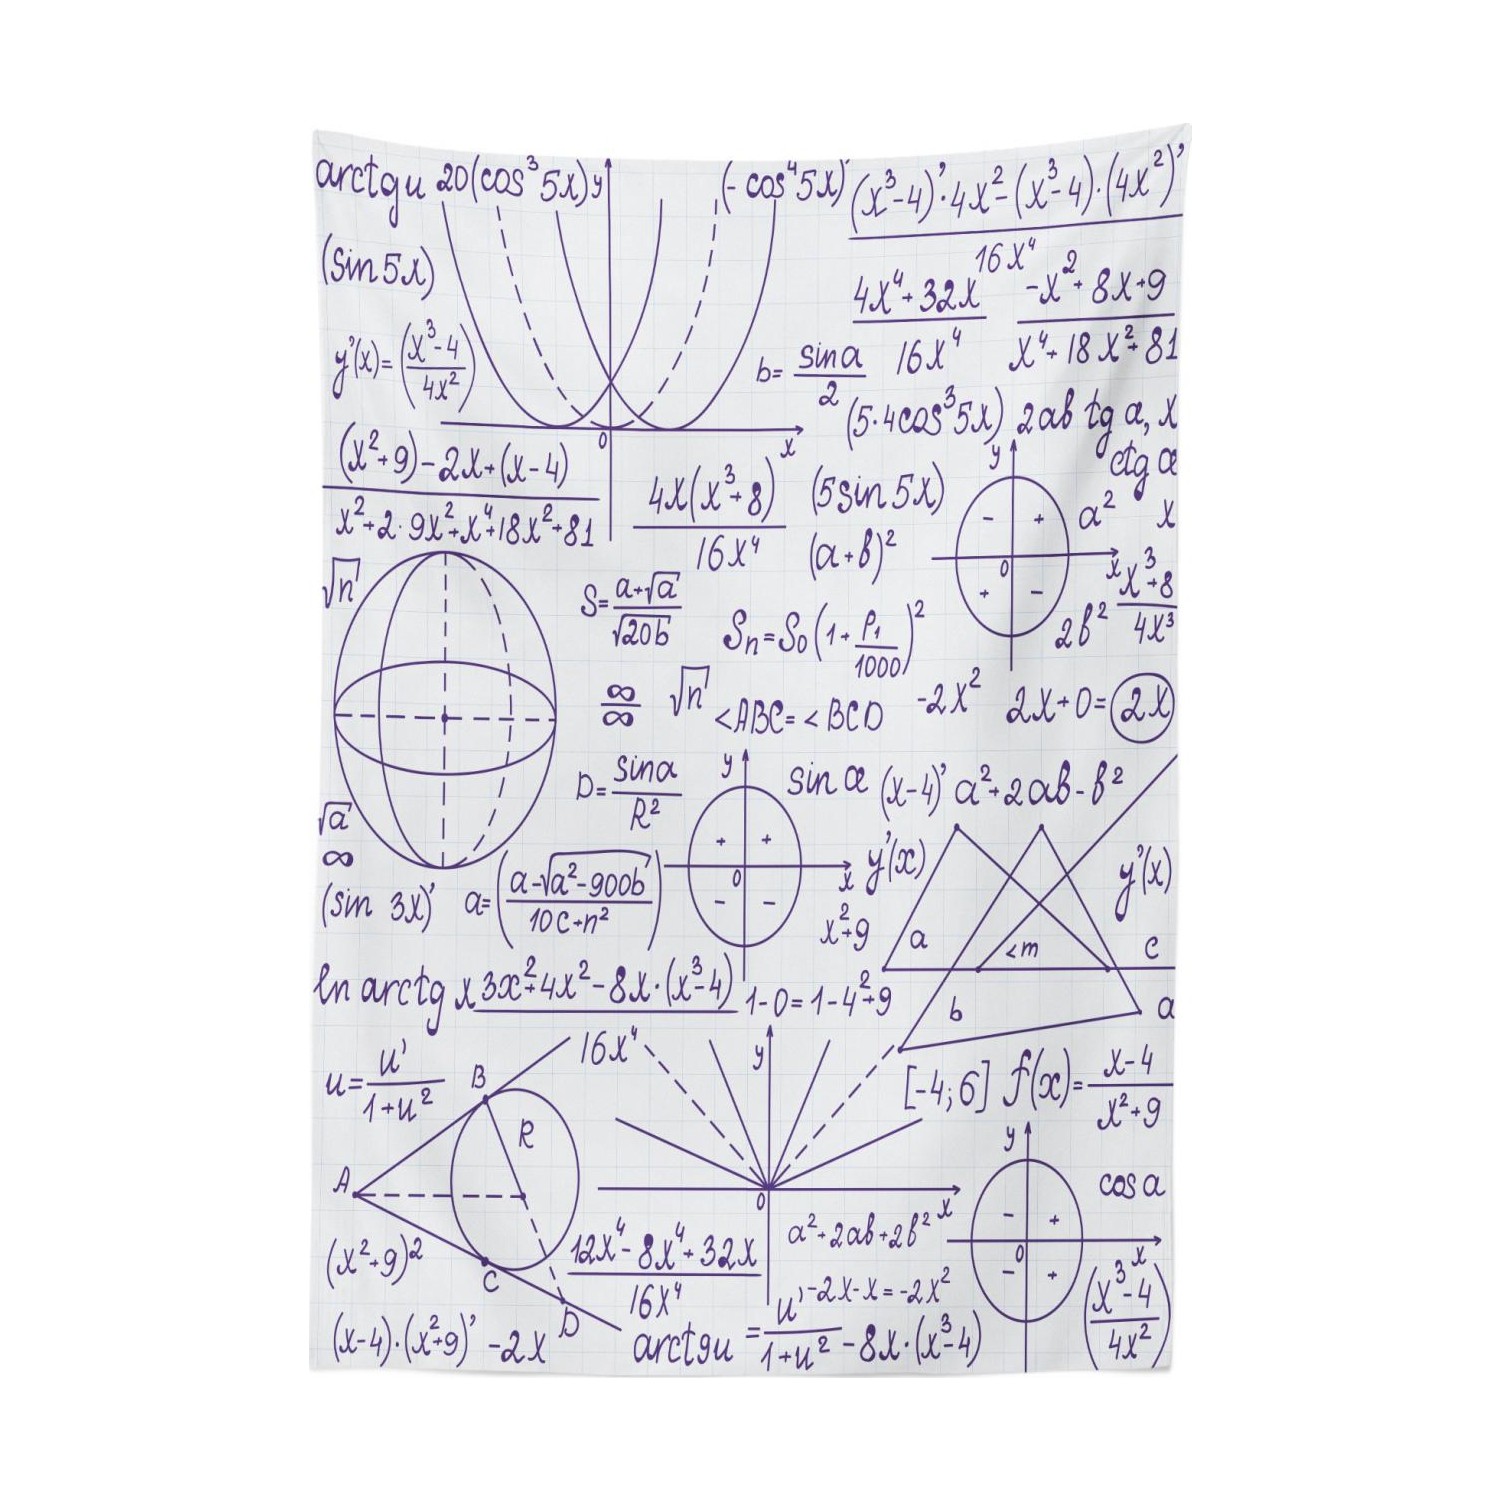 arctgu 20(cos³5x) y (-cos⁴5x)' (x³-4)'·4x²-(x³-4)·(4x²)'
16x⁴
(sin5x)
4x⁴+32x
16x⁴
-x²+8x+9
x⁴+18x²+81
y'(x)=(x³-4
4x²)
b= sina
2
0 x
(5·4cos³5x) 2ab tg a, x
ctg α
(x²+9)-2x+(x-4)
x²+2·9x²+x⁴+18x²+81
4x(x³+8)
16x⁴
(5sin5x)
(a+b)²
y - + 0 x + -
a² x
x³+8
4x³
2b²
√n
S= a+√a
√20b
Sn=So(1+ P1
1000)²
∞
∞
√n <ABC=<BCD -2x² 2x+0=2x
D= sina
R²
y + + 0 x - -
sin α (x-4)' a²+2ab-b²
√a
∞
y'(x)
y'(x)
(sin 3x)' a=(a-√a²-900b
10c+n²)
x²+9
a <m c
b a
ln arctg x 3x²+4x²-8x·(x³-4)
16x⁴
1-0=1-4²+9
u= u'
1+u²
B R A C D
y 0 x
[-4;6] f(x)= x-4
x²+9
y - + 0 x - +
cos a
(x²+9)²
12x⁴-8x⁴+32x
16x⁴
a²+2ab+2b²
-2x-x=-2x²
(x³-4
4x²)
(x-4)·(x²+9)' -2x arctgu = u'
1+u² -8x·(x³-4)